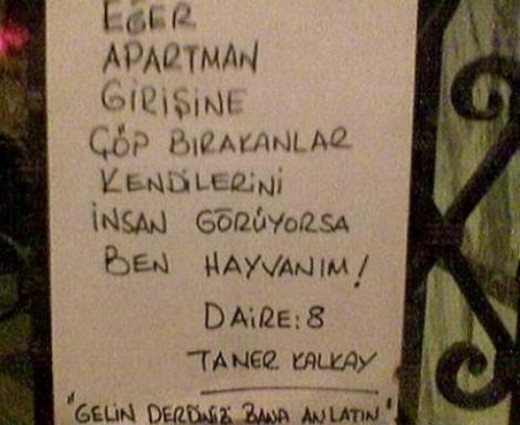 EĞER
APARTMAN
GİRİŞİNE
ÇÖP BIRAKANLAR
KENDİLERİNİ
İNSAN GÖRÜYORSA
BEN HAYVANIM!
DAİRE:8
TANER KALKAY
"GELİN DERDİNİZİ BANA ANLATIN"